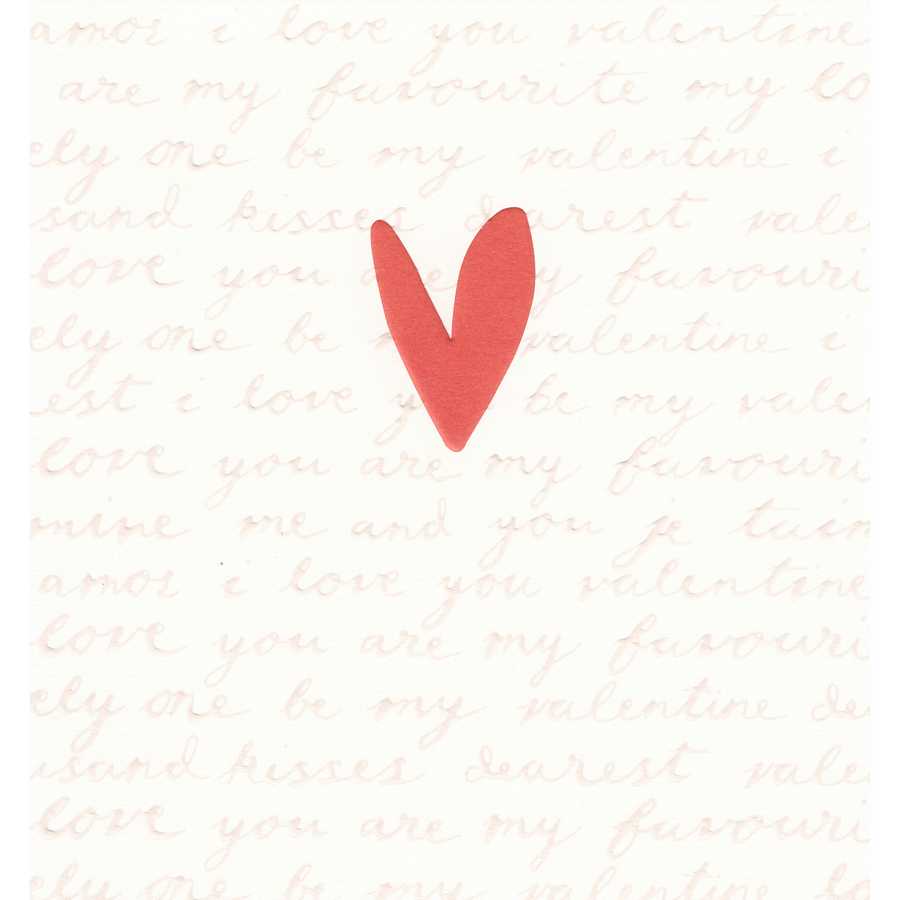 amor i love you valentine
are my favourite my lo
ely one be my valentine i
sand kisses dearest vale
love you are my favouri
ely one be my valentine i
est i love you be my valen
love you are my favouri
mine me and you je t'aim
amor i love you valentine
love you are my favouri
ely one be my valentine de
usand kisses dearest vale
love you are my favouri
ely one be my valentine lo